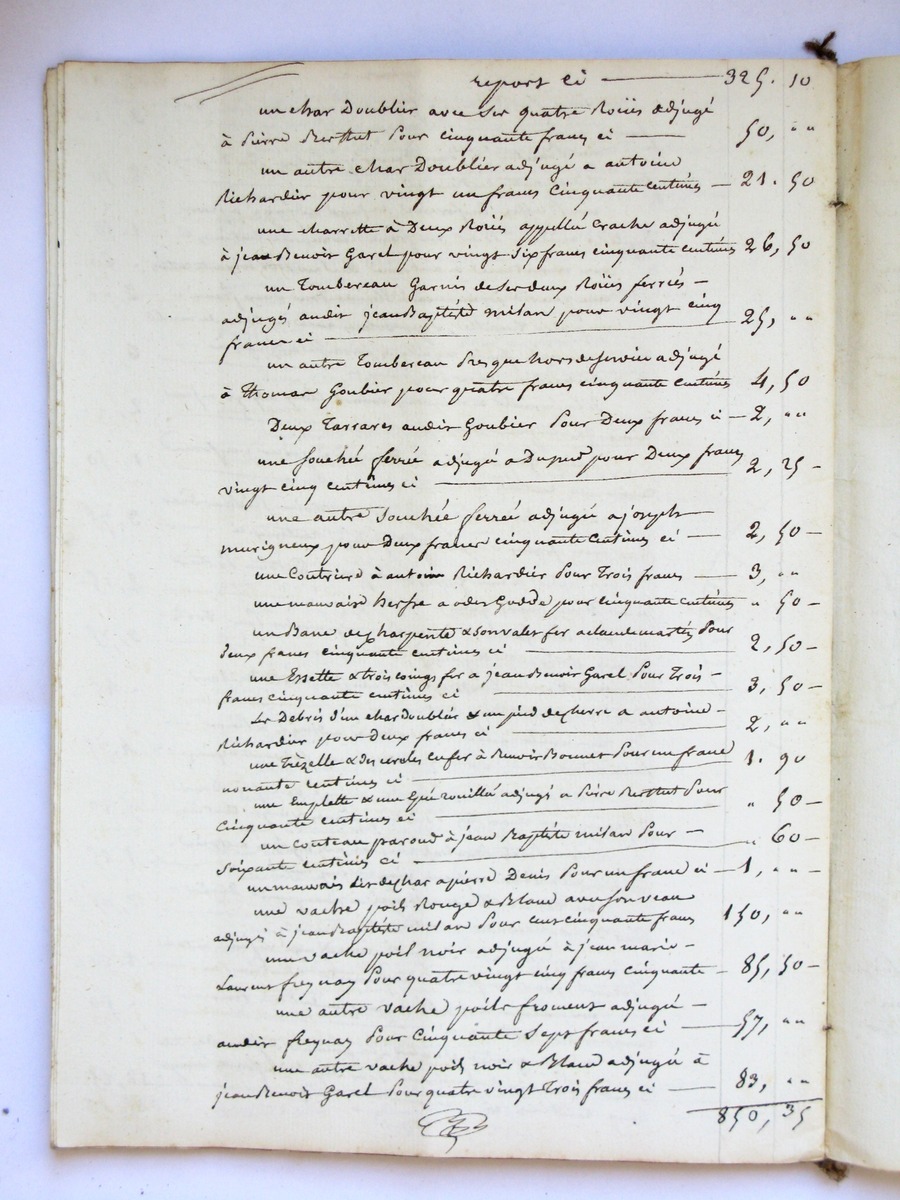 report ci — 325. 10
un char Doublier avec ses quatre Roües adjugé
à pierre Berthet pour cinquante francs ci — 50, " "
un autre char Doublier adjugé a antoine
Richardier pour vingt un francs cinquante centimes — 21. 50
une charrette à Deux Roües appellée crache adjugée
à jean Benoit Garel pour vingt six francs cinquante centimes 26, 50
un Tombereau Garnis de ses deux Roües ferrées —
adjugés audit jean Baptiste milan pour vingt cinq
francs ci — 25, " "
un autre Tombereau presque hors de service adjugé
à Thomas Goubier pour quatre francs cinquante centimes 4, 50
Deux Tarrares audit Goubier pour Deux francs ci — 2, " "
une souchée ferrée adjugée a Dupré pour Deux francs
vingt cinq centimes ci — 2, 25 —
une autre souchée ferrée adjugée a joseph
murigneux pour Deux francs cinquante centimes ci — 2, 50 —
une Coutrière à antoine Richardier pour Trois francs — 3, " "
une mauvaise herse a odet Godde pour cinquante centimes " 50 —
un Banc de charpente & son valet fer a claude pour
deux francs cinquante centimes ci — 2, 50 —
une Essette & trois coings fer a jean Benoit Garel pour Trois —
francs cinquante centimes ci — 3, 50 —
Les Debris d'un char Doublier & un pied de a antoine —
Richardier pour Deux francs ci — 2, " "
une & des cercles en fer à Benoit Bonnet pour un franc
nonante centimes ci — 1. 90
une Emplette & une Epée rouillée adjugés a pierre Berthet pour
cinquante centimes ci — " 50 —
un couteau paroud à jean Baptiste milan pour —
soixante centimes ci — " 60 —
un mauvais de char a pierre Denis pour un franc ci — 1, " " —
une vache poils Rouge & Blanc avec son veau
adjugés à jean Baptiste milan pour cent cinquante francs 150, " "
une vache poil noir adjugée à jean marie —
Laurent freynay pour quatre vingt cinq francs cinquante — 85, 50 —
une autre vache poils froment adjugée —
audit freynay pour cinquante sept francs ci — 57, " "
une autre vache poil noir & Blanc adjugée à
jean Benoit Garel pour quatre vingt Trois francs ci — 83, " "
850, 35